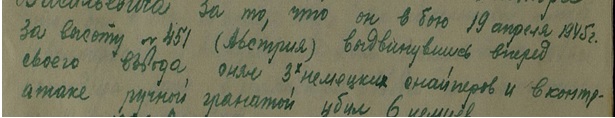 Васильевича за то, что он в бою 19 апреля 1945г.
за высоту № 451 (Австрия) выдвинувшись вперед
своего взвода снял 3х немецких снайперов и в контр-
атаке ручной гранатой убил 6 немцев